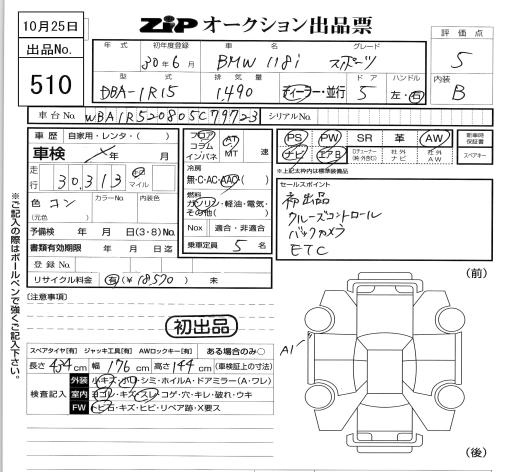 10月25日
出品No.
510
ZIP オークション出品票
評価点
5
内装
B
年式
初年度登録
30年6月
車名
BMW 118i
グレード
スポーツ
型式
DBA-1R15
排気量
1,490
ディーラー・並行
ドア
5
ハンドル
左・右
車台No.
WBA1R520805C79723
シリアルNo.
車歴
自家用・レンタ・( )
車検
年 月
走行
30,313
km
マイル
色
コン
(元色 )
カラーNo
内装色
予備検 年 月 日(3・8)No.
書類有効期限 年 月 日迄
登録No.
リサイクル料金
有(¥18,570) 未
フロア
コラム
インパネ
AT
MT
速
冷房
無・C・AC・AAC
燃料
ガソリン・軽油・電気・
その他( )
Nox
適合・非適合
乗車定員 5 名
PS
PW
SR
革
AW
新車時
保証書
ナビ
エアB
社外
ナビ
社外
AW
スペアキー
※上記太枠内は標準装備品
セールスポイント
初出品
クルーズコントロール
バックカメラ
ETC
※ご記入の際はボールペンで強くご記入下さい。
(注意事項)
初出品
スペアタイヤ[有] ジャッキ工具[有] AWロックキー[有] ある場合のみ○
長さ 434 cm 幅 176 cm 高さ 144 cm (車検証上の寸法)
検査記入
外装
小キズ・小凹・シミ・ホイルA・ドアミラー(A・ワレ)
室内
ヨゴレ・キズ・スレ・コゲ・穴・キレ・破れ・ウキ
FW
トビ石・キズ・ヒビ・リペア跡・X要ス
(前)
A1
(後)